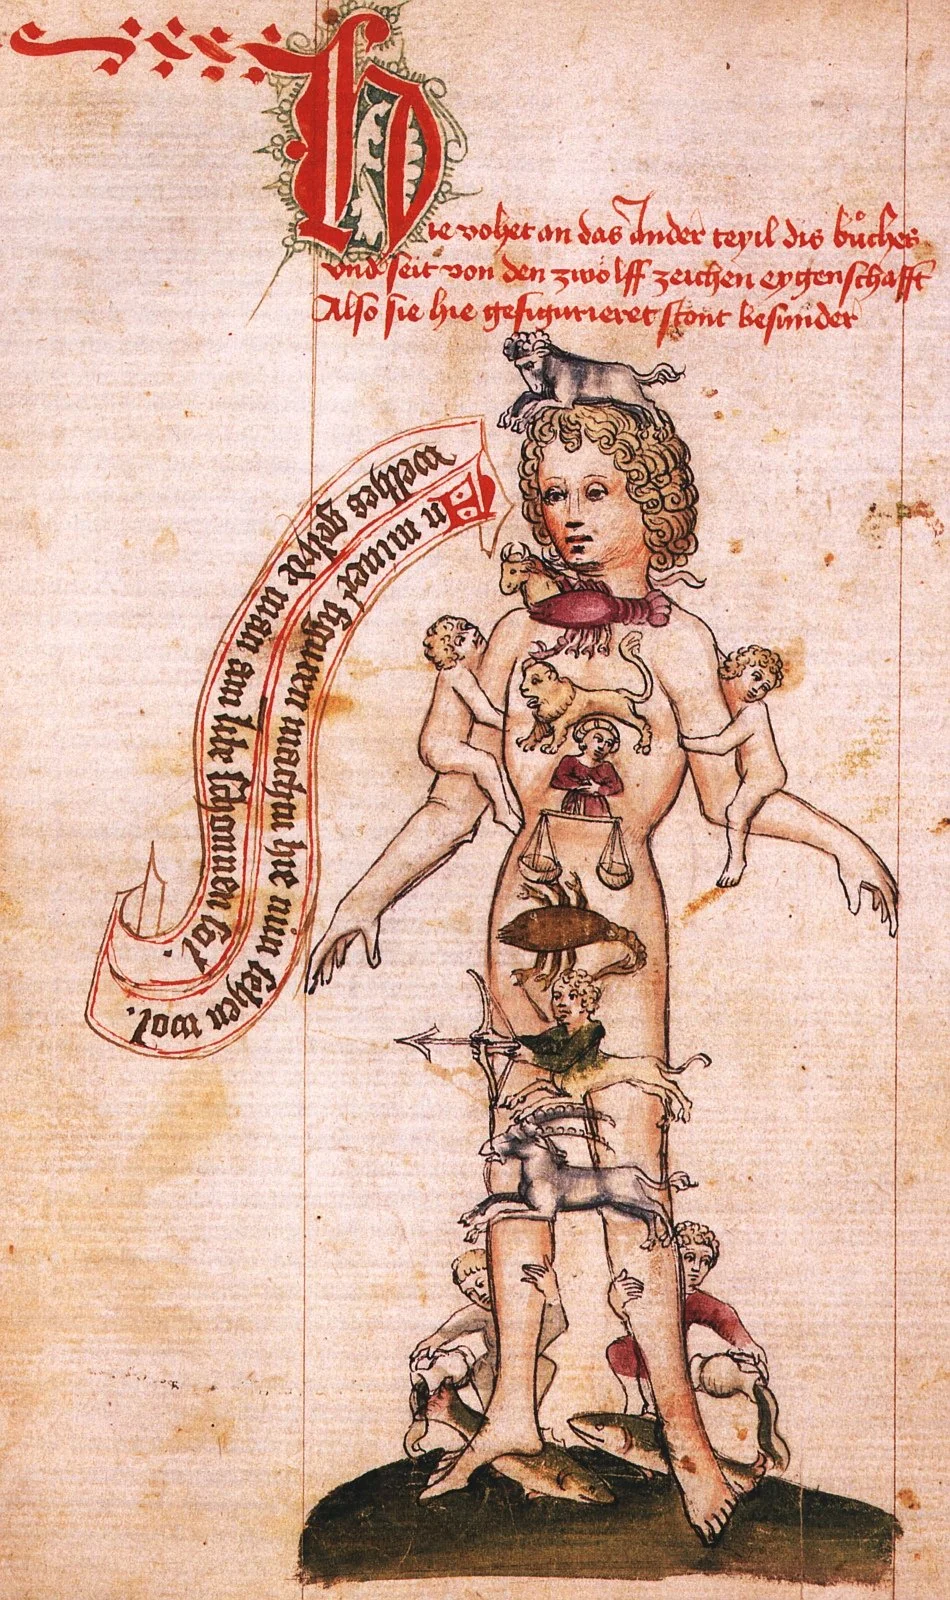 Hie vohet an das Ander teyil dis bůches
vnd seit von den zwölff zeichen eygenschafft
Also sie hie gefigurieret stont besunder
An miner figuren machtu hie nün sehen wol.
welhes gelyd man am lide schonnen sol.